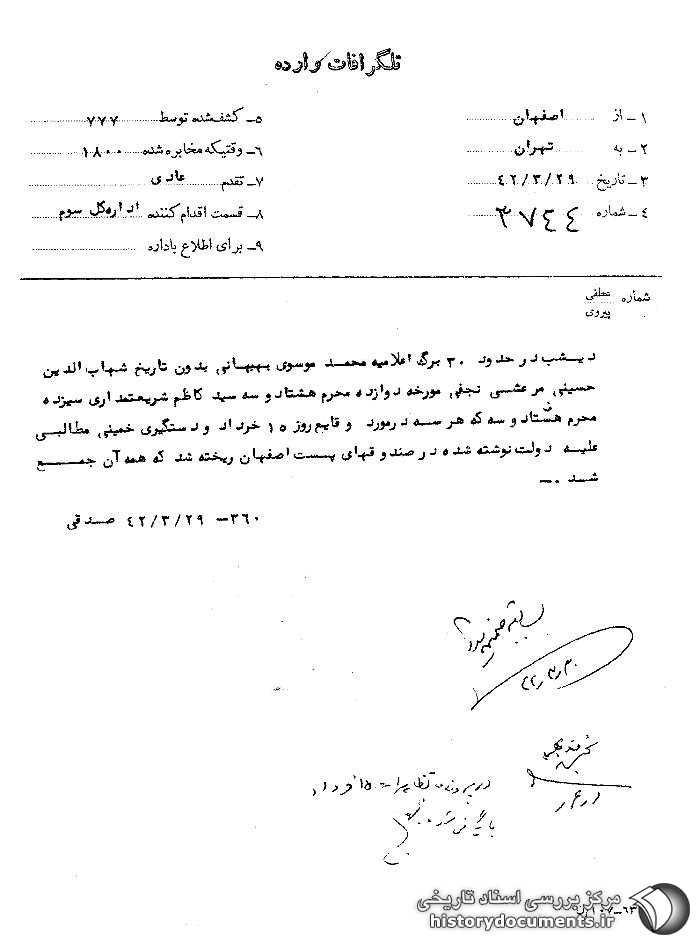 تلگرافات وارده
۱ـ از اصفهان
۲ـ به تهران
۳ـ تاریخ ۴۲/۳/۲۹
۴ـ شماره ۳۷۴۴
۵ـ کشف‌شده توسط ۷۷۷
۶ـ وقتیکه مخابره شده ۱۸۰۰
۷ـ تقدم عادی
۸ـ قسمت اقدام کننده اداره‌کل سوم
۹ـ برای اطلاع باداره
شماره عطفی
پیروی
دیشب در حدود ۳۰ برگ اعلامیه محمد موسوی بهبهانی بدون تاریخ شهاب الدین
حسینی مرعشی نجفی مورخه دوازده محرم هشتاد و سه سید کاظم شریعتمداری سیزده
محرم هشتاد و سه که هر سه در مورد وقایع روز ۱۵ خرداد و دستگیری خمینی مطالبی
علیه دولت نوشته شده در صندوقهای پست اصفهان ریخته شد که همه آن جمع
شد ۰ـ
۳۶۰ـ ۴۲/۳/۲۹ صدقی
در پرونده تظاهرات ۱۵ خرداد
بایگانی شود
مرکز بررسی اسناد تاریخی
historydocuments.ir